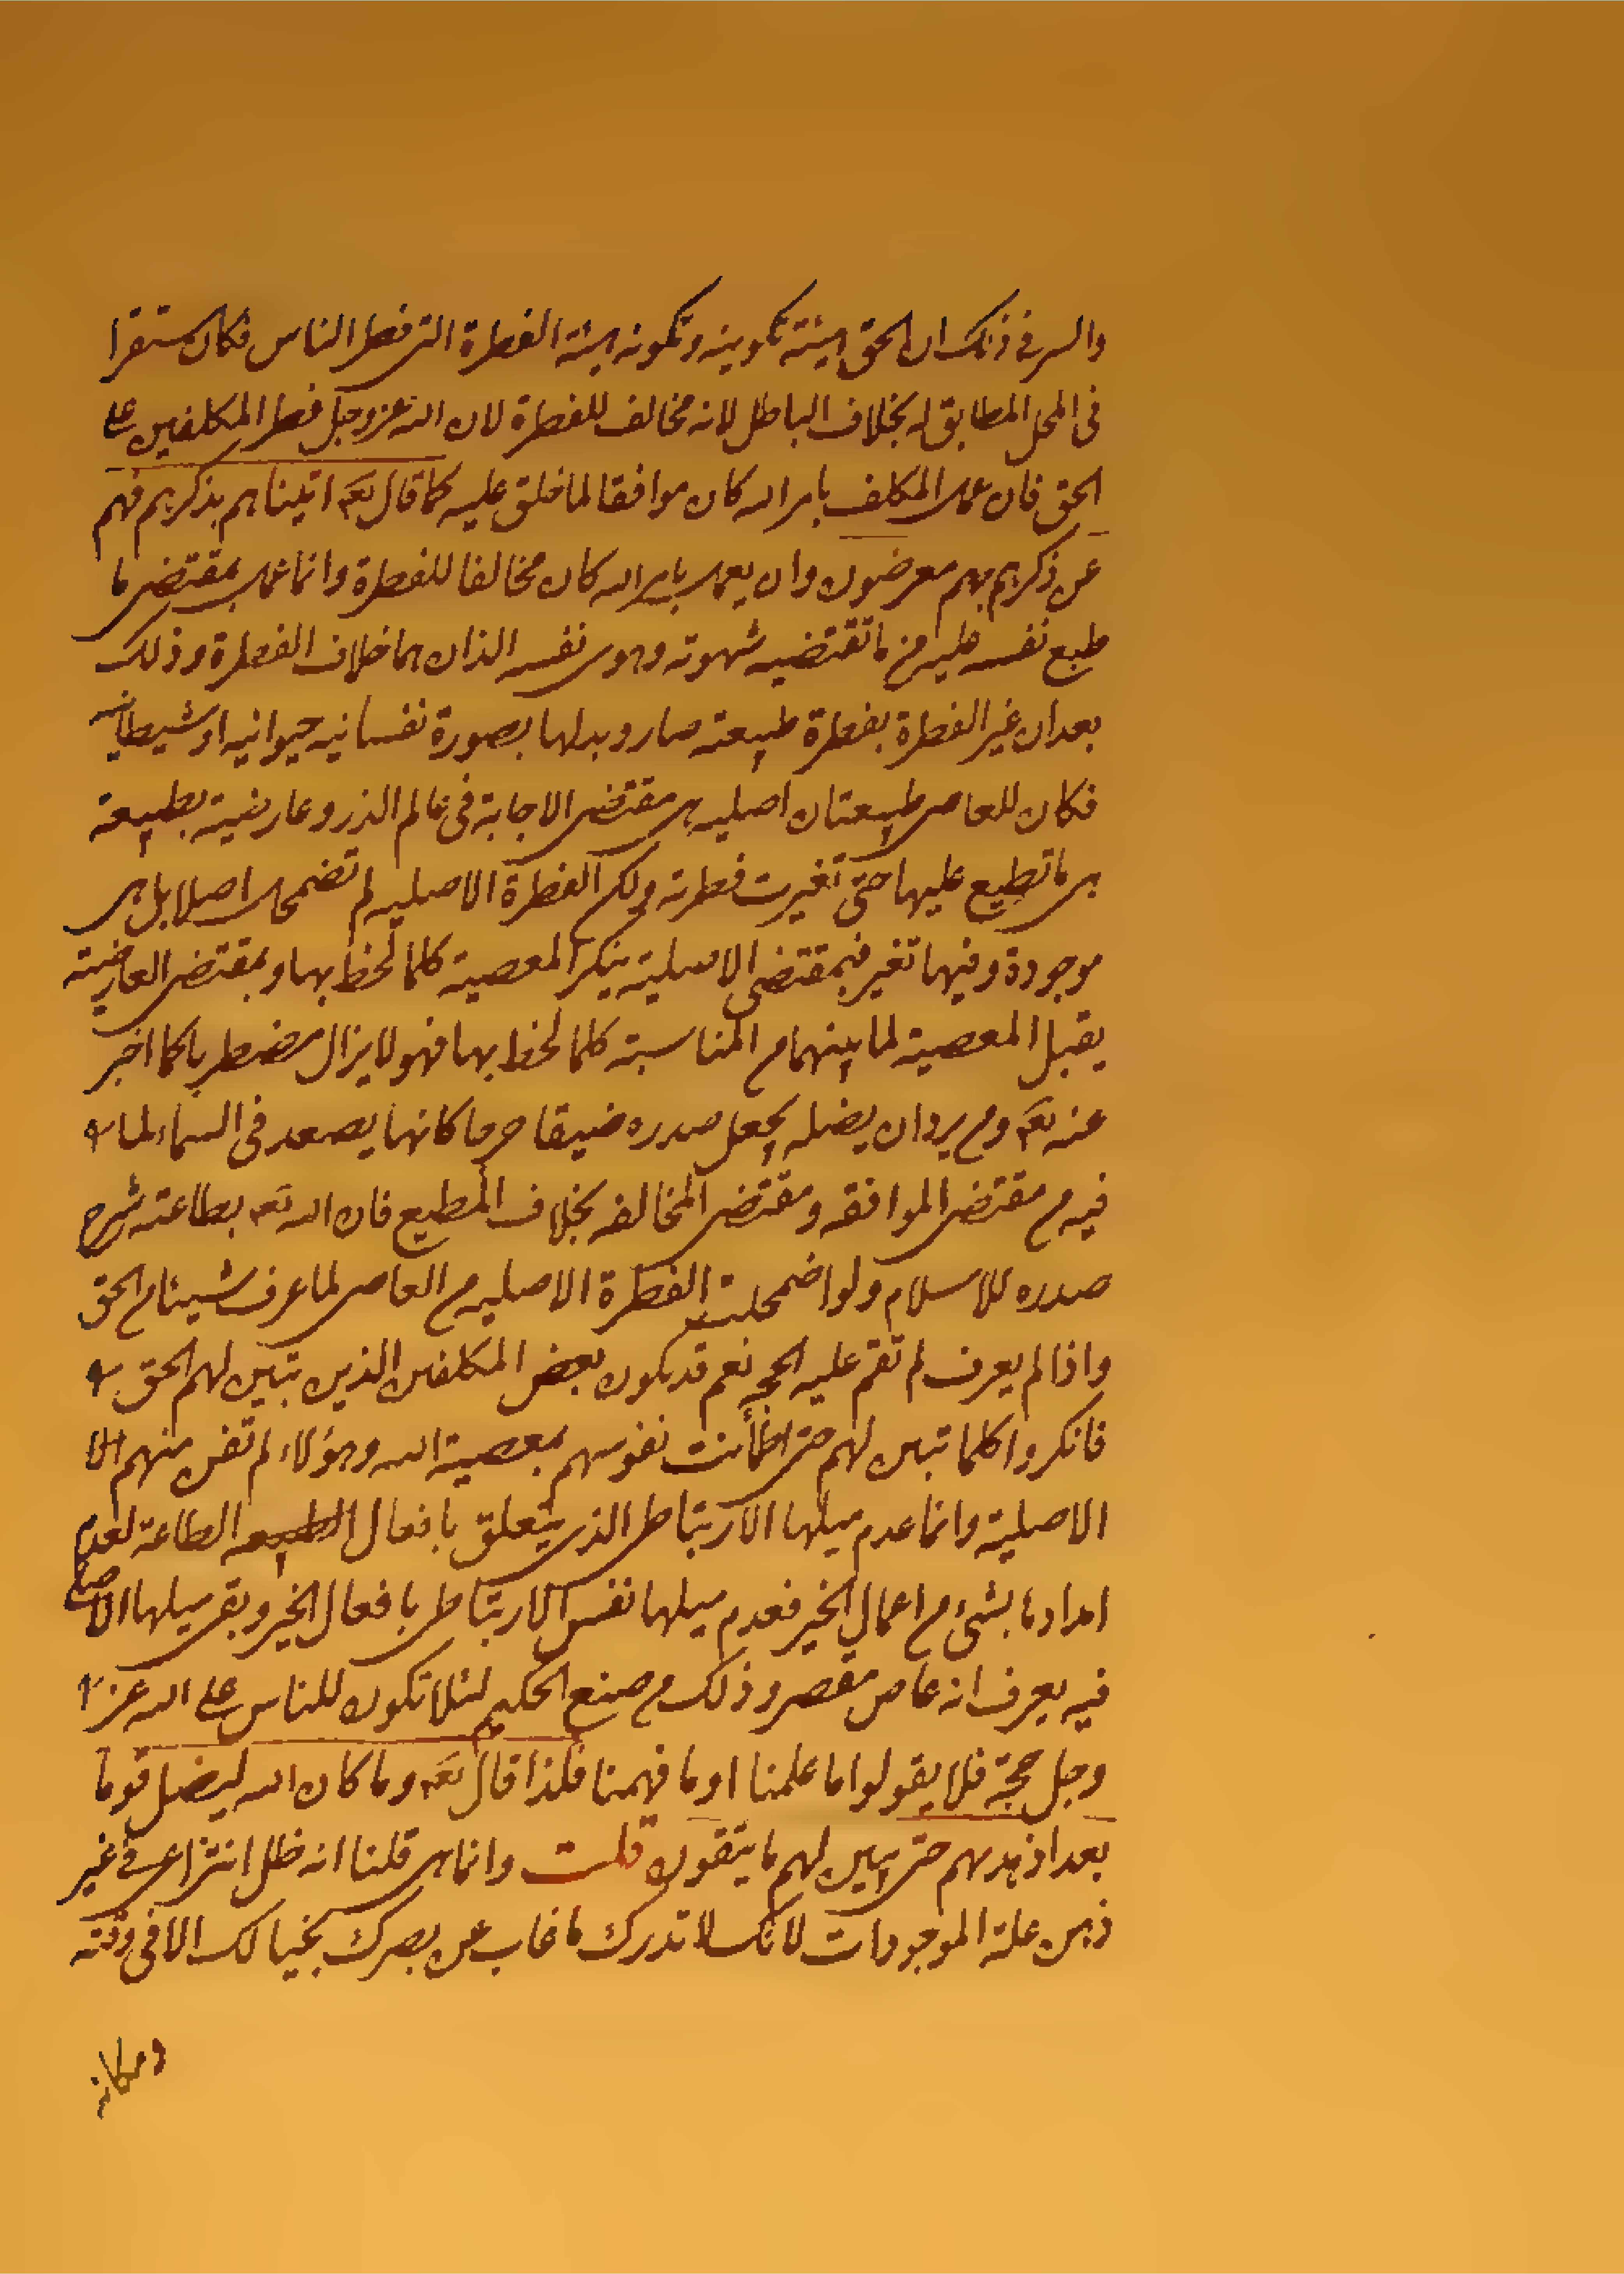 والسر في ذلك ان الحق هيئته تكوينه وتكونه هيئة الفطرة التي فطر الناس فكان مستقرا
في المحل المطابق له بخلاف الباطل لانه مخالف للفطرة لان الله عز وجل فطر المكلفين على
الحق فان عمل المكلف بامر الله كان موافقا لما خلق عليه كما قال تعه اتيناهم بذكرهم فهم
عن ذكرهم معرضون وان يعمل بامر الله كان مخالفا للفطرة وانما عمل بمقتضى ما
طبع نفسه عليه من ما تقتضيه شهوته وهوى نفسه الذان هما خلاف الفطرة وذلك
بعد ان غير الفطرة بفطرة طبيعته صار وبدلها بصورة نفسانيه حيوانيه او شيطانيه
فكان للعاصي طبيعتان اصليه هي مقتضى الاجابة في عالم الذر وعارضية بطبيعة
هي ما تطبع عليها حتى تغيرت فطرته ولكن الفطرة الاصليه لم تضمحل اصلا بل هي
موجودة وفيها تغير فبمقتضى الاصلية ينكر المعصية كلما لحظ بها وبمقتضى العارضية
يقبل المعصية لما بينهما من المناسبة كلما لحظ بها فهو لا يزال مضطربا كما اخبر
عنه تعه ومن يرد ان يضله يجعل صدره ضيقا حرجا كانما يصعد في السماء لما
فيه من مقتضى الموافقه ومقتضى المخالفه بخلاف المطيع فان الله تعه بطاعته شرح
صدره للاسلام ولو اضمحلت الفطرة الاصليه من العاصي لما عرف شيئا من الحق
واذا لم يعرف لم تقم عليه الحجه نعم قد يكون بعض المكلفين الذين تبين لهم الحق
فانكروا كلما تبين لهم حتى اطمأنت نفوسهم بمعصية الله وهؤلاء لم تفن منهم
الاصلية وانما عدم ميلها الارتباطي الذي يتعلق بافعال الطاعة لعدم
امدادها بشيء من اعمال الخير فعدم ميلها نفس الارتباطي بافعال الخير وبقي ميلها الاصلي
فبه يعرف انه عاص مقصر وذلك من صنع الحكيم لئلا تكون للناس على الله عز
وجل حجة فلا يقولوا ما علمنا او ما فهمنا فلذا قال تعه وما كان الله ليضل قوما
بعد اذ هديهم حتى يبين لهم ما يتقون قلت وانما قلنا انه ظل انتزاعي في غير
ذهن علة الموجودات لانك لا تدرك ما غاب عن بصرك بخيالك الا في وقته
ومكانه